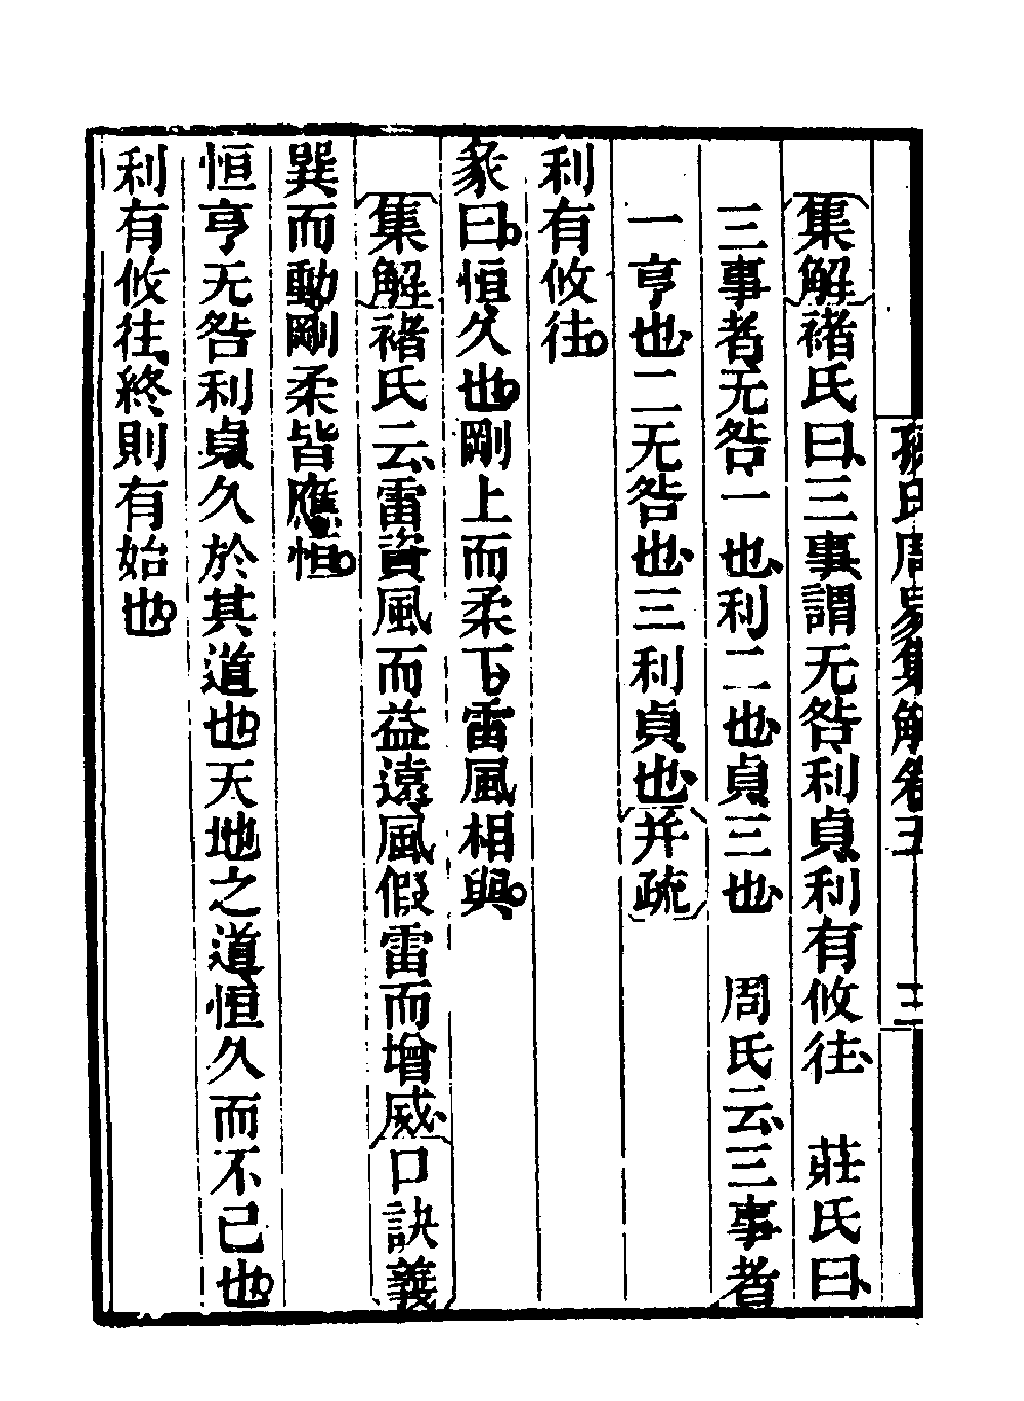 孫氏周易集解卷五
三
集解褚氏曰三事謂无咎利貞利有攸往　莊氏曰
三事者无咎一也利二也貞三也　周氏云三事者
一亨也二无咎也三利貞也并疏
利有攸往
彖曰恒久也剛上而柔下雷風相與
集解褚氏云雷資風而益遠風假雷而增威口訣義
巽而動剛柔皆應恒
恒亨无咎利貞久於其道也天地之道恒久而不已也
利有攸往終則有始也